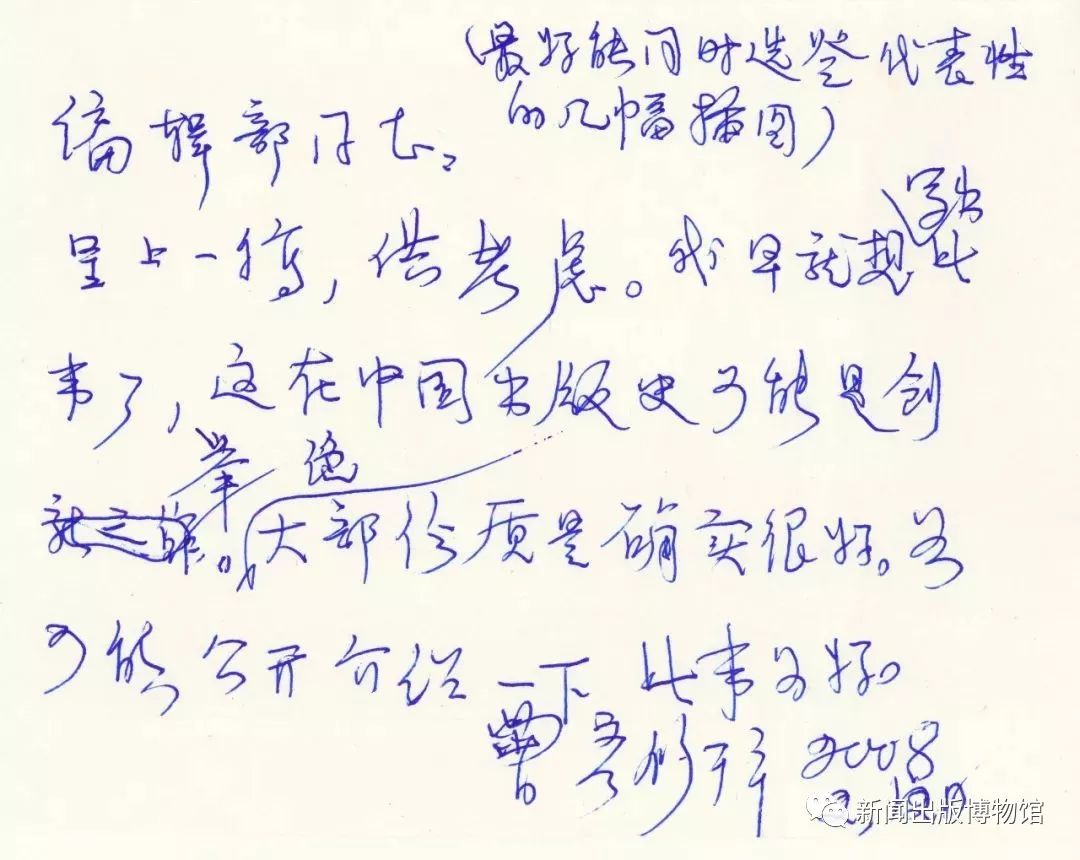 （最好能同时选登代表性
的几幅插图）
编辑部同志：
写出
呈上一稿，供考虑。我早就想此
事了，这在中国出版史可能是创
举 绝
。大部份质量确实很好。若
可能公开介绍一下此事为好。
曾彦修 2008
新闻出版博物馆